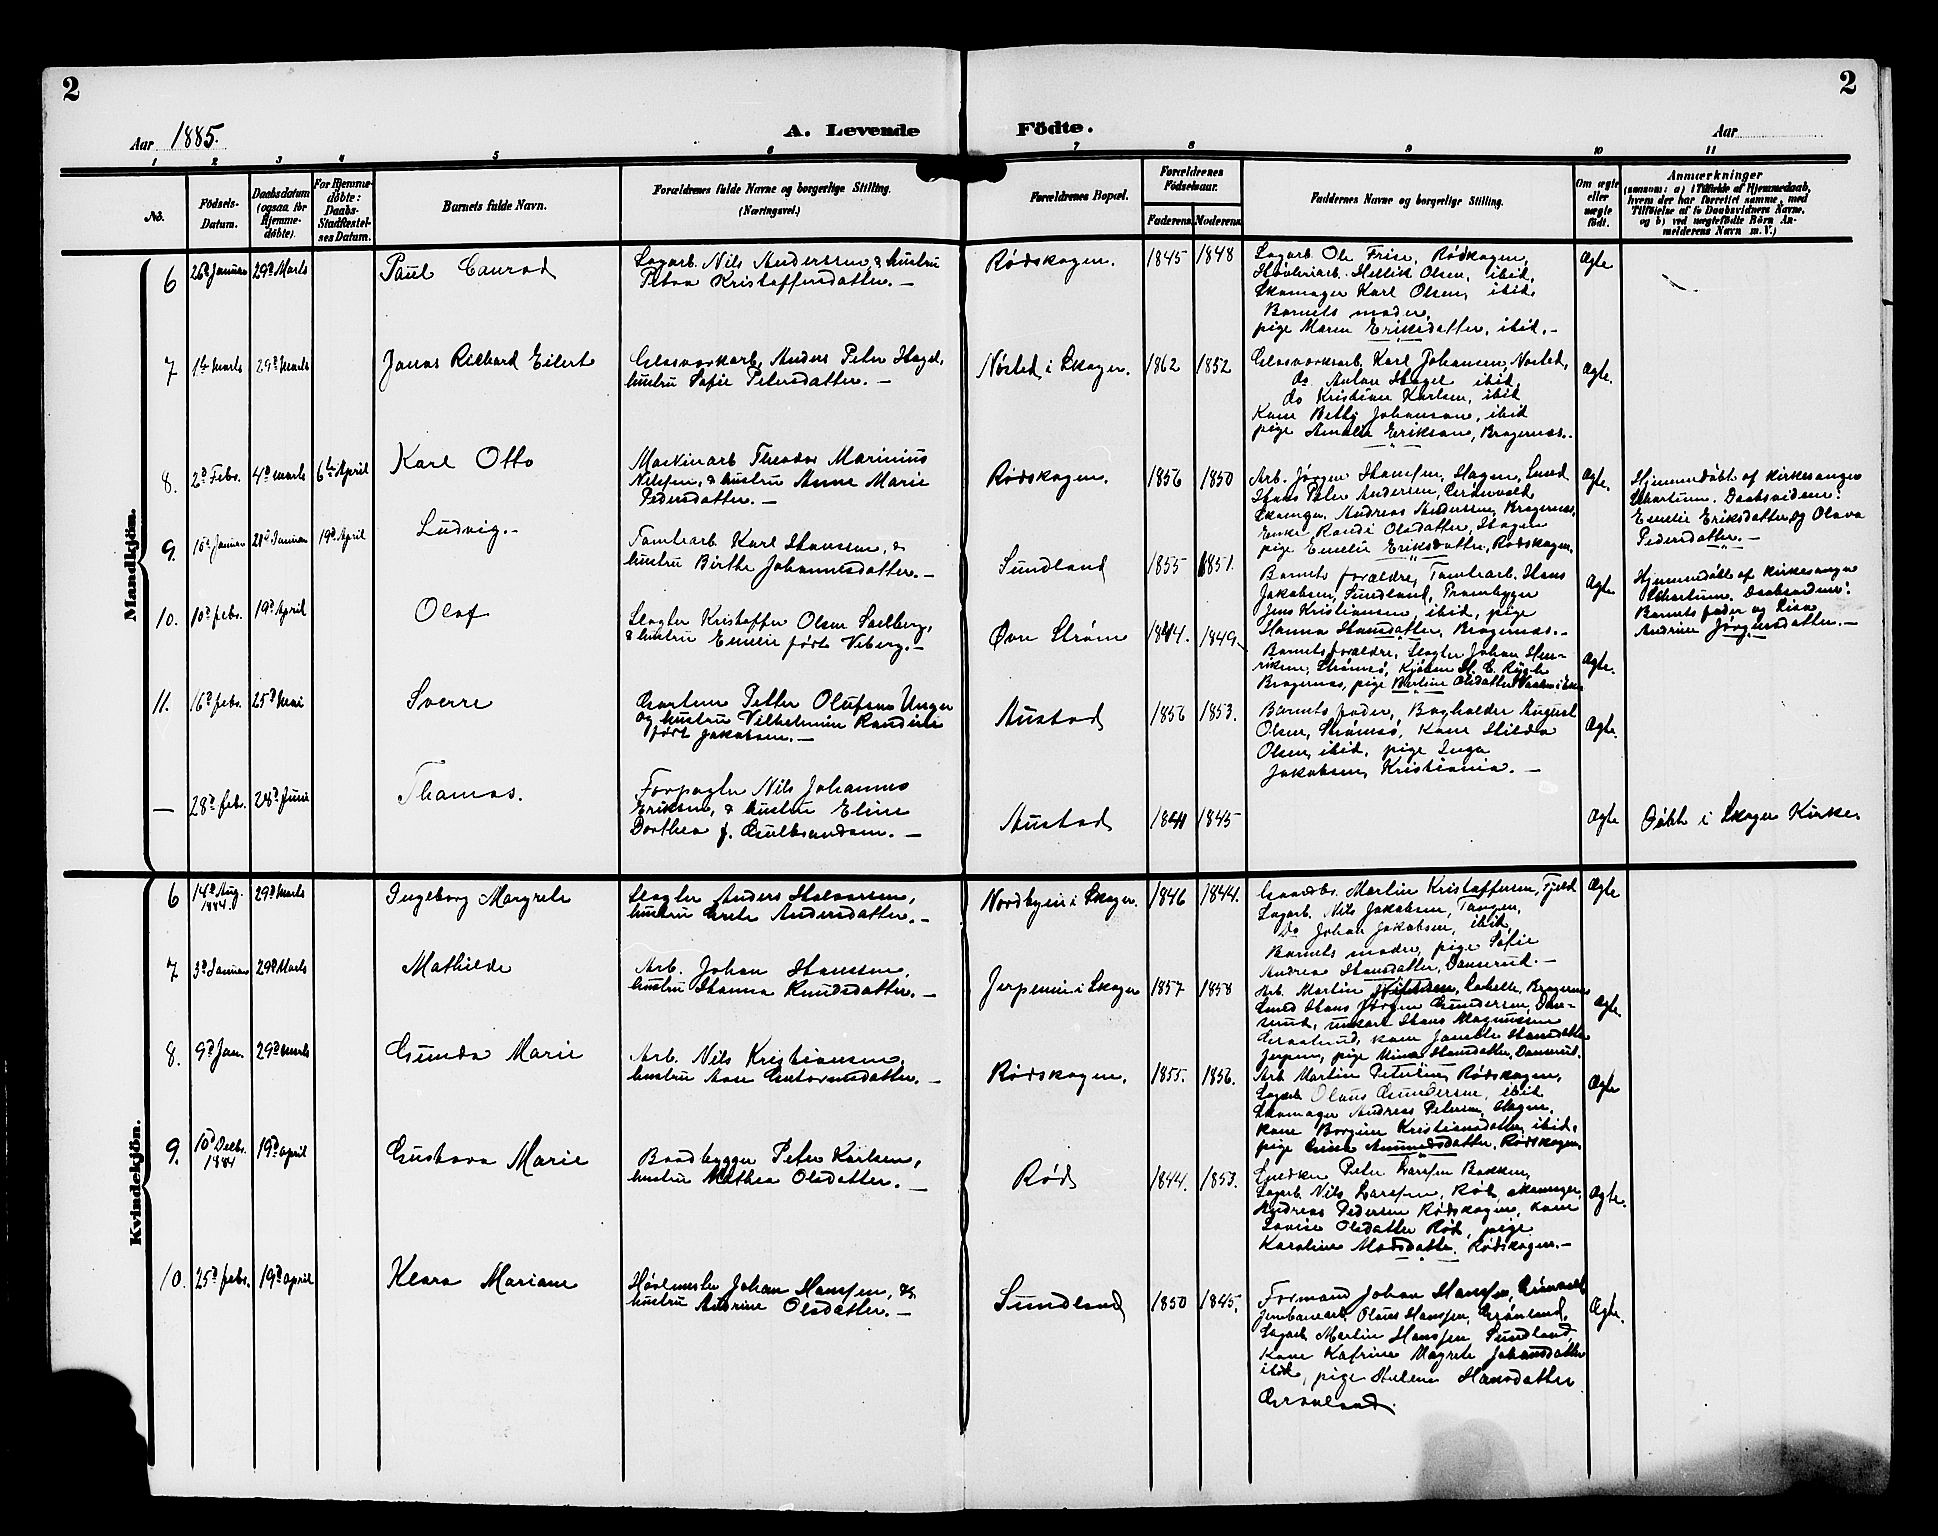 2
2
Aar 1885.
A. Levende Födte.
Aar
1 2 3 4 5 6 7 8 9 10 11
No.
Födsels-Datum.
Daabsdatum (ogsaa for Hjemmedöbte).
For Hjemmedöbte: Daabs-Stadfæstelses Datum.
Barnets fulde Navn.
Forældrenes fulde Navne og borgerlige Stilling.
(Næringsvei.)
Forældrenes Bopæl.
Forældrenes Födselsaar.
Faderens Moderens
Faddernes Navne og borgerlige Stilling.
Om ægte eller uægte födt.
Anmærkninger
(saasom: a) i Tilfælde af Hjemmedaab, hvem der har forrettet samme, med Tilföielse af to Daabsvidners Navne, og b) ved uægtefödte Börn Anmelderens Navn m. V.)
Mandkjön.
6 26d Januar 29d Marts
Paul Conrad
Sagarb. Nils Anderssen, & hustru
Petra Kristoffersdatter. —
Rødskogen. 1845 1848
Sagarb. Ole Frise, Rødskogen,
Høvleriarb. Hellik Olsen, ibid,
Skomager Karl Olsen, ibid,
Barnets moder,
pige Maren Eriksdatter, ibid. —
Ægte
7 29d Marts
Jonas Richard Eilert
Glasværkarb. Anders Peter Hagel,
hustru Sofie Petersdatter. —
Nøsted i Skoger. 1862 1852
Glasværksarb. Karl Johansen, Nøsted,
do Anton Hagel ibid,
do Kristian Karlsen, ibid
Kone Betty Johansen, ibid
pige Amalie Eriksen, Bragernæs.
Ægte.
8. 2d Febr. 4d Marts 6te April
Karl Otto
Maskinarb Theodor Marinius
Nilssen, & hustru Anne Marie
Pedersdatter. —
Rødskogen. 1856 1850
Arb. Jørgen Hanssen, Hagen, Lund
Hans Peter Andersen,
Skomager. Andreas Anderssen, Bragernæs,
Enke Randi Olsdatter, Hagen
pige Emelie Eriksdatter, Rødskogen.
Ægte.
Hjemmedøbt af Kirkesanger
Daabsvidner:
Emelie Eriksdatter og Olava
Pedersdatter. —
9. 16d Januar 21d Januar 19d April
Ludvig. —
Tomtearb Karl Hanssen, &
hustru Birthe Johannesdatter. —
Sundland 1855 1851.
Barnets forældre, Tomtearb. Hans
Jakobsen, Sundland, Prambygger
Jens Kristiansen, ibid, pige
Hanna Hansdatter, Bragernæs. —
Ægte
Hjemmedøbt af Kirkesanger
Daabsvidner:
Barnets fader og Lisa
Andrine Jørgensdatter. —
10. 10d febr. 19d April
Olaf
Slagter Kristoffer Olsen Solberg,
& hustru Emelie født Viberg. —
Øvre Strøm 1844. 1849.
Barnets forældre, Slagter Johan Henriksen, Strømsø, Kjøbm H. C.
Bragernæs, pige Bertine Olsdatter
Ægte.
11. 16d febr. 25d Mai
Sverre
Gartner Petter Olufsen Unger
og hustru Vilhelmine Randine
født Jakobsen. —
Austad 1856 1853.
Barnets fader, Bogholder August
Olsen, Strømsø, Kone Hilda
Olsen, ibid, pige Inga
Jakobsen, Kristiania. —
Ægte.
— 28d febr. 28d Juni
Thomas.
Forpagter Nils Johannes
Eriksen, & hustru Eline
Dorthea f. Gulbrandsen. —
Austad 1841 1845
Ægte
Døbt i Skoger Kirke.
Kvindekjön.
6 14d Aug. 1884. 29d Marts
Ingeborg Margrete
Slagter Anders Halvorsen,
hustru Grete Andersdatter. —
Nordbyeie i Skoger. 1846 1844.
Gaardbr. Martin Kristoffersen, Fjeld
Sagarb. Nils Jakobsen, Tangen,
Do Johan Jakobsen, ibid,
Barnets moder, pige Sofie
Andrea Hansdatter, Danserud. —
Ægte
7 3d Januar 29d Marts
Mathilde
Arb. Johan Hanssen,
hustru Hanna Knudsdatter. —
Jerpeneie i Skoger 1857 1858
Arb. Martin Bragernæs
Smed Hans Jørgen Gundersen, Danserud, ungkarl Hans Magnussen
Graaterud, kone Janette Hansdatter
Jerpen, pige Mina Hansdatter, Danserud.
Ægte
8. 9d Jan. 29d Marts
Gunda Marie
Arb. Nils Kristiansen,
hustru Aase Guttormsdatter. —
Rødskogen. 1855. 1856.
Arb Martin Petersen, Rødskogen,
Sagarb Olaus Gundersen, ibid
Skomager Andreas Petersen, Hagen,
kone Borgine Kristiansdatter, ibid.
pige Amundsdatter, Rødskogen
Ægte
9. 10d Decbr. 1884 19d April
Gustava Marie
Baadbygger Peter Karlsen,
hustru Mathea Olsdatter. —
Rød 1844. 1853.
Snedker Peter Larssen Bakken,
Sagarb. Nils Larssen, Rød, skomager.
Andreas Pedersen Rødskogen, kone
Lovise Olsdatter Rød, pige
Karoline Madsdatter, Rødskogen. —
Ægte.
10. 25d febr. 19d April
Klara Mariane
Høvlmester Johan Hanssen, &
hustru Andrine Olsdatter. —
Sundland 1850 1845.
Formand Johan Hanssen, Grønland
Jernbanearb. Olaus Hanssen, Grønland,
Sagarb. Martin Hanssen Sundland,
Kone Katrine Magrete Johansdatter
ibid, pige Helene Hansdatter
Grønland.
Ægte.